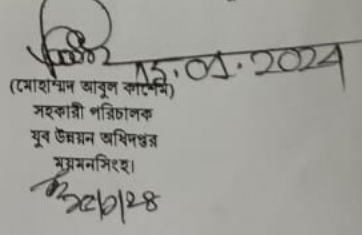 15.01.2024
(মোহাম্মদ আবুল কাশেম)
সহকারী পরিচালক
যুব উন্নয়ন অধিদপ্তর
ময়মনসিংহ।